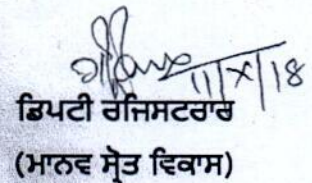 11/X/18
ਡਿਪਟੀ ਰਜਿਸਟਰਾਰ
(ਮਾਨਵ ਸ੍ਰੋਤ ਵਿਕਾਸ)